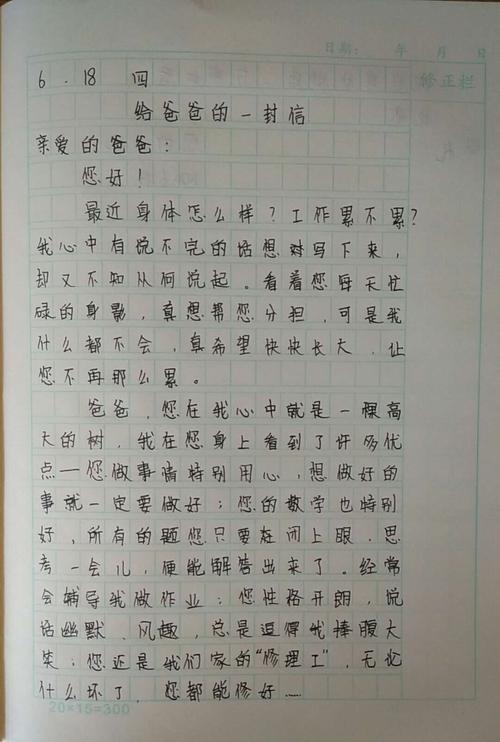 日期: 年 月 日
修正栏
6.18 四
给爸爸的一封信
亲爱的爸爸:
您好!
最近身体怎么样?工作累不累?
我心中有说不完的话想对写下来,
却又不知从何说起。看着您每天忙
碌的身影,真想帮您分担,可是我
什么都不会,真希望快快长大,让
您不再那么累。
爸爸,您在我心中就是一棵高
大的树,我在您身上看到了许多优
点——您做事情特别用心,想做好的
事就一定要做好;您的数学也特别
好,所有的题您只要在闭上眼,思
考一会儿,便能解答出来了。经常
会辅导我做作业;您性格开朗,说
话幽默、风趣,总是逗得我捧腹大
笑;您还是我们家的“修理工”,无忆
什么坏了 您都能修好……
20×15=300